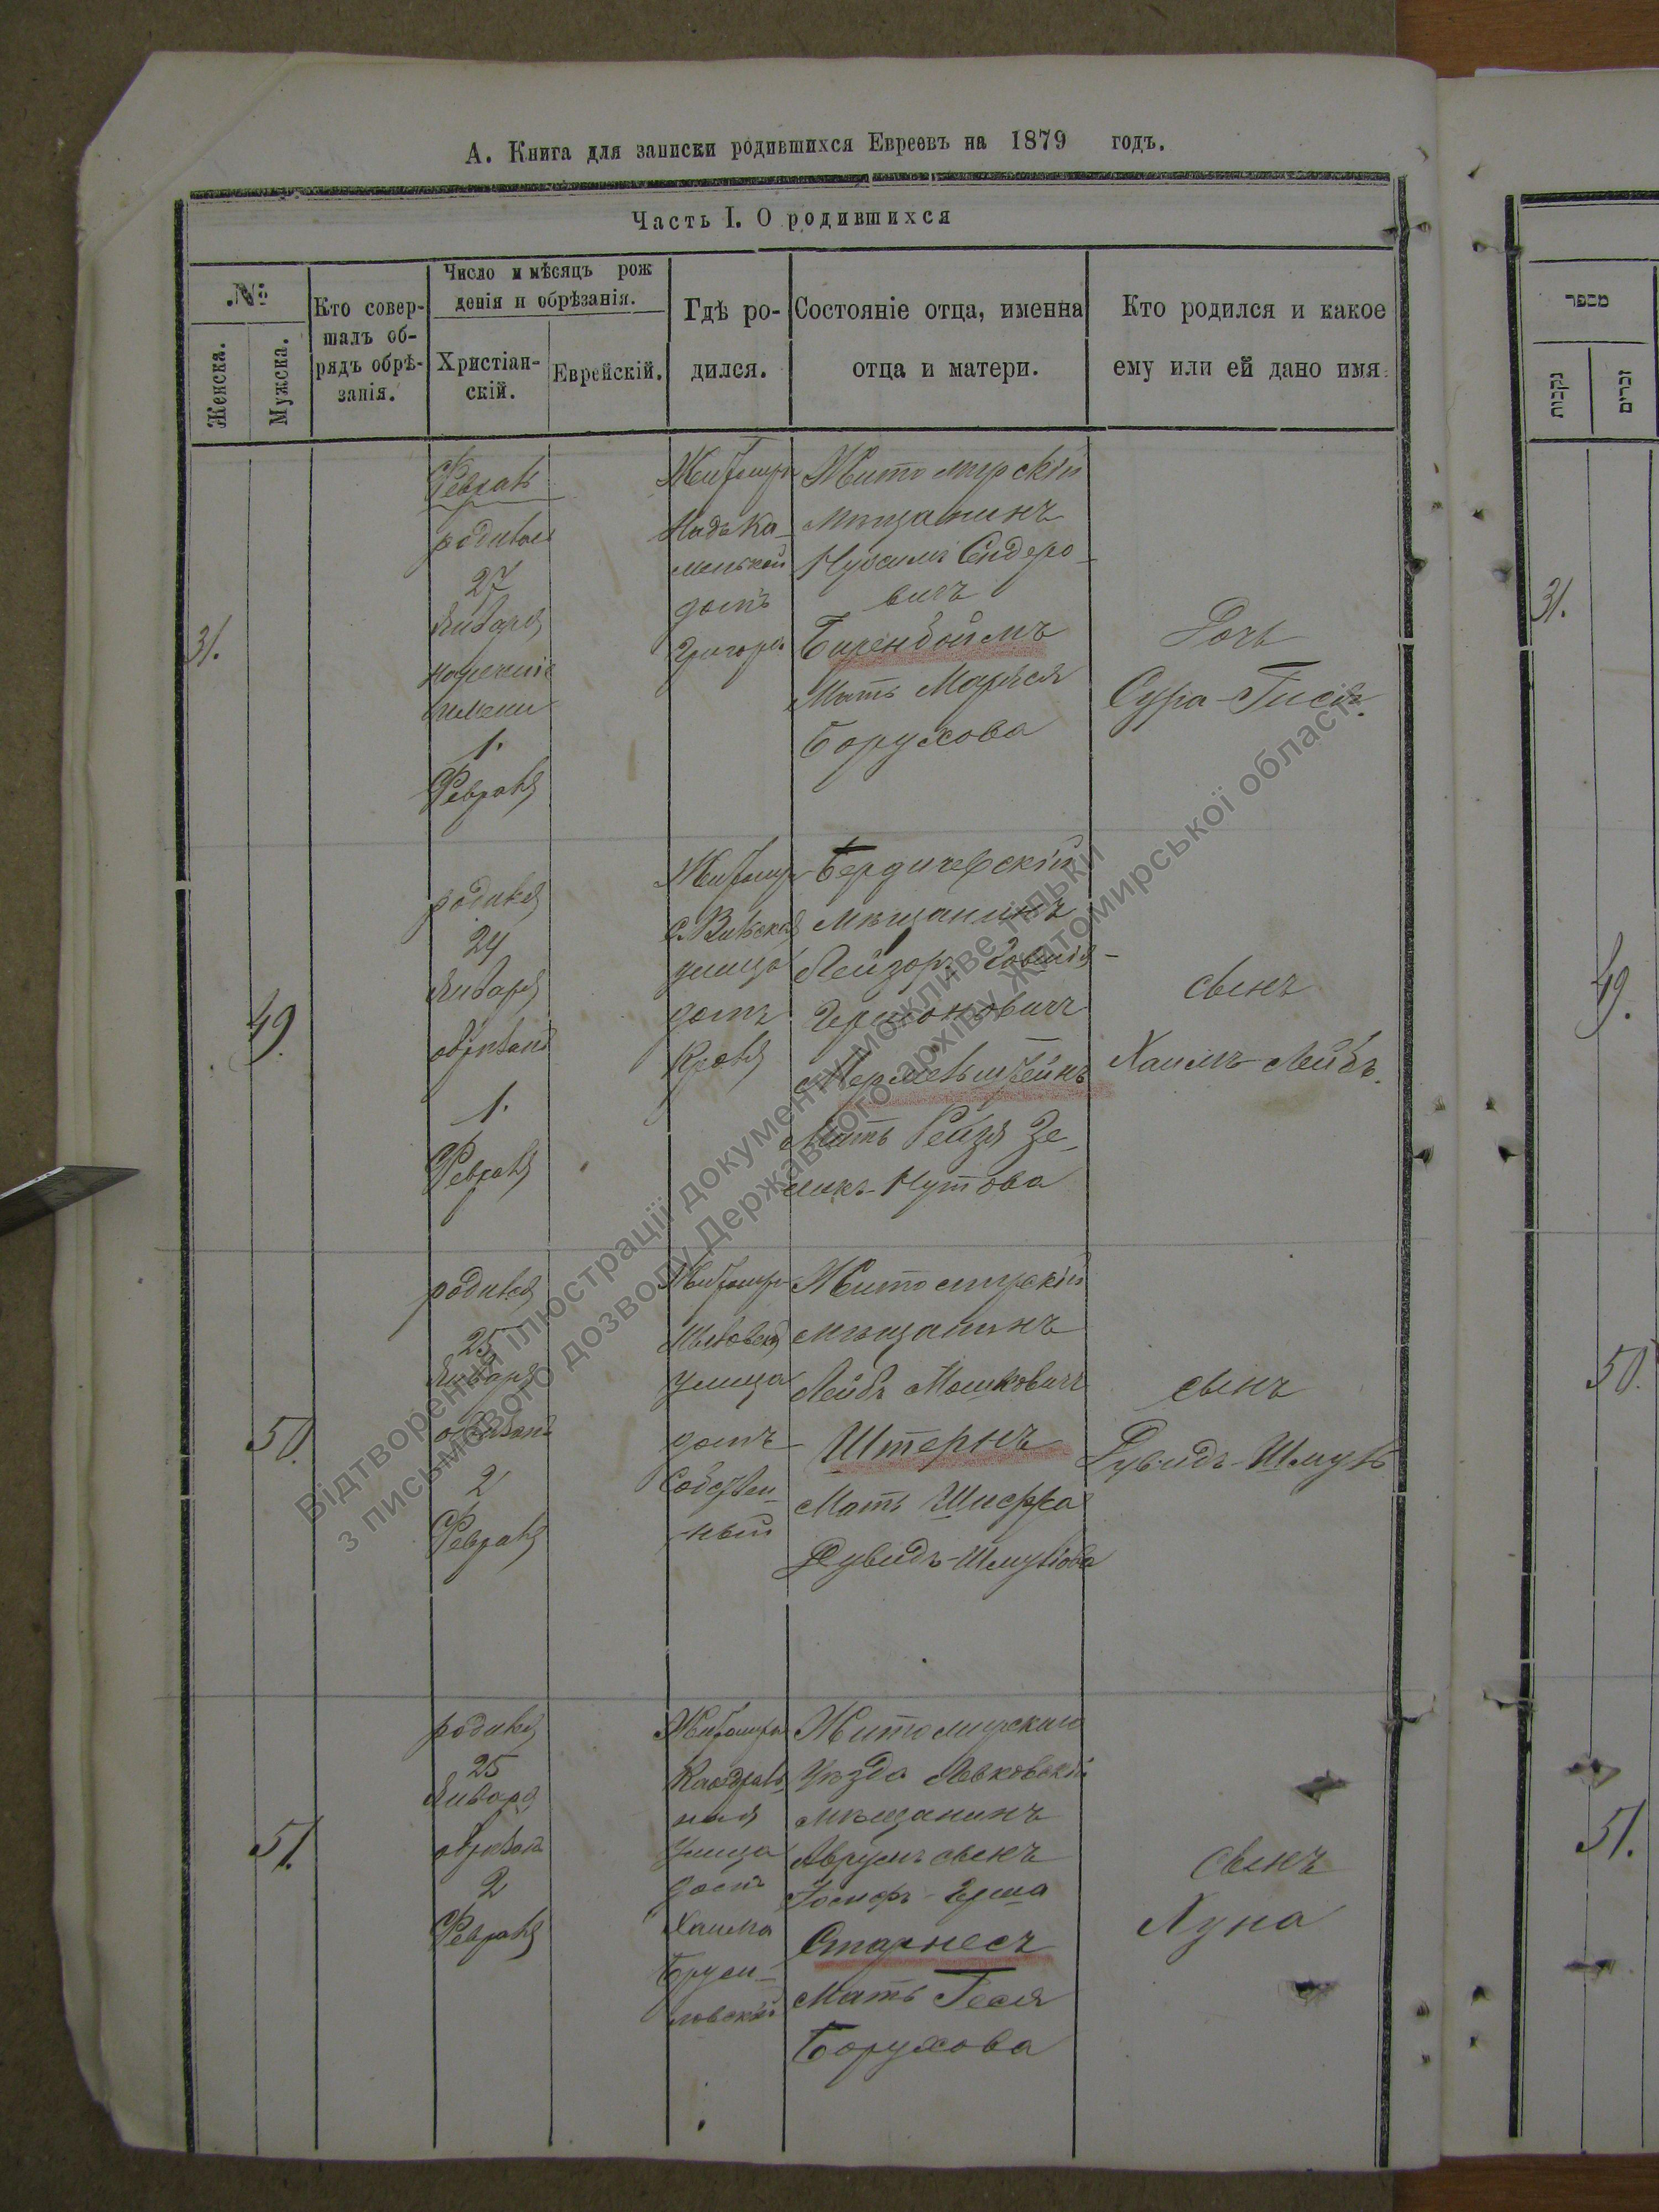 А. Книга для записки родившихся Евреевъ на 1879 годъ.
Часть I. О родившихся
№
Женска.
Мужска.
Кто совер-
шалъ об-
рядъ обрѣ-
занія.
Число и мѣсяцъ рож
денія и обрѣзанія.
Христіан-
скій.
Еврейскій.
Гдѣ ро-
дился.
Состояніе отца, именна
отца и матери.
Кто родился и какое
ему или ей дано имя.
31.
Февраль
родилась
27
Января
нареченіе
имени
1.
Февраля
Житомиръ
домъ
Житомирскій
мѣщанинъ
Нухимъ Сендеро-
вичъ
Биренбоймъ
Мать Марься
Борухова
Дочь
Сура-Гися.
49.
родился
24
Января
обрѣзанъ
1.
Февраля
Житомиръ
улица
домъ
Бердичевскій
мѣщанинъ
Лейзоръ
Гершоновичъ
Мать Рейзя Зе-
ликъ-Нутова
сынъ
Хаимъ-Лейбъ.
50.
родился
25
Января
обрѣзанъ
2
Февраля
Житомиръ
улица
домъ
Собствен-
ный
Житомирскій
мѣщанинъ
Лейбъ Мошковичъ
Штернъ
Мать Шифра
Дувидъ-Шмулюва
сынъ
Дувидъ-Шмуль
51.
родился
25
Января
обрѣзанъ
2
Февраля
Житомиръ
Каѳедраль
ная
улица
домъ
Хаима
Бруси-
ловскій
Житомирскаго
уѣзда Левковскій
мѣщанинъ
Аврумъ сынъ
Іосифъ-Герша
Старнесъ
Мать Гесся
Борухова
сынъ
Хуна
מספר
נקבות
זכרים
31.
49.
50.
51.
Відтворення ілюстрації документу можливе тільки
з письмового дозволу Державного архіву Житомирської області